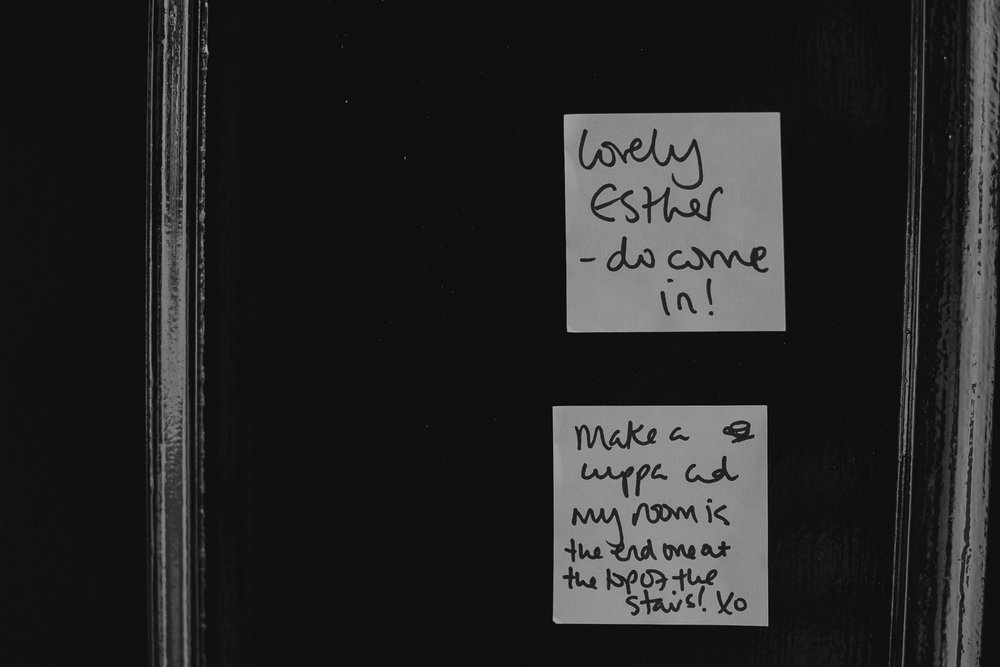 lovely
Esther
- do come
in!
Make a
cuppa and
my room is
the end one at
the top of the
stairs! xo